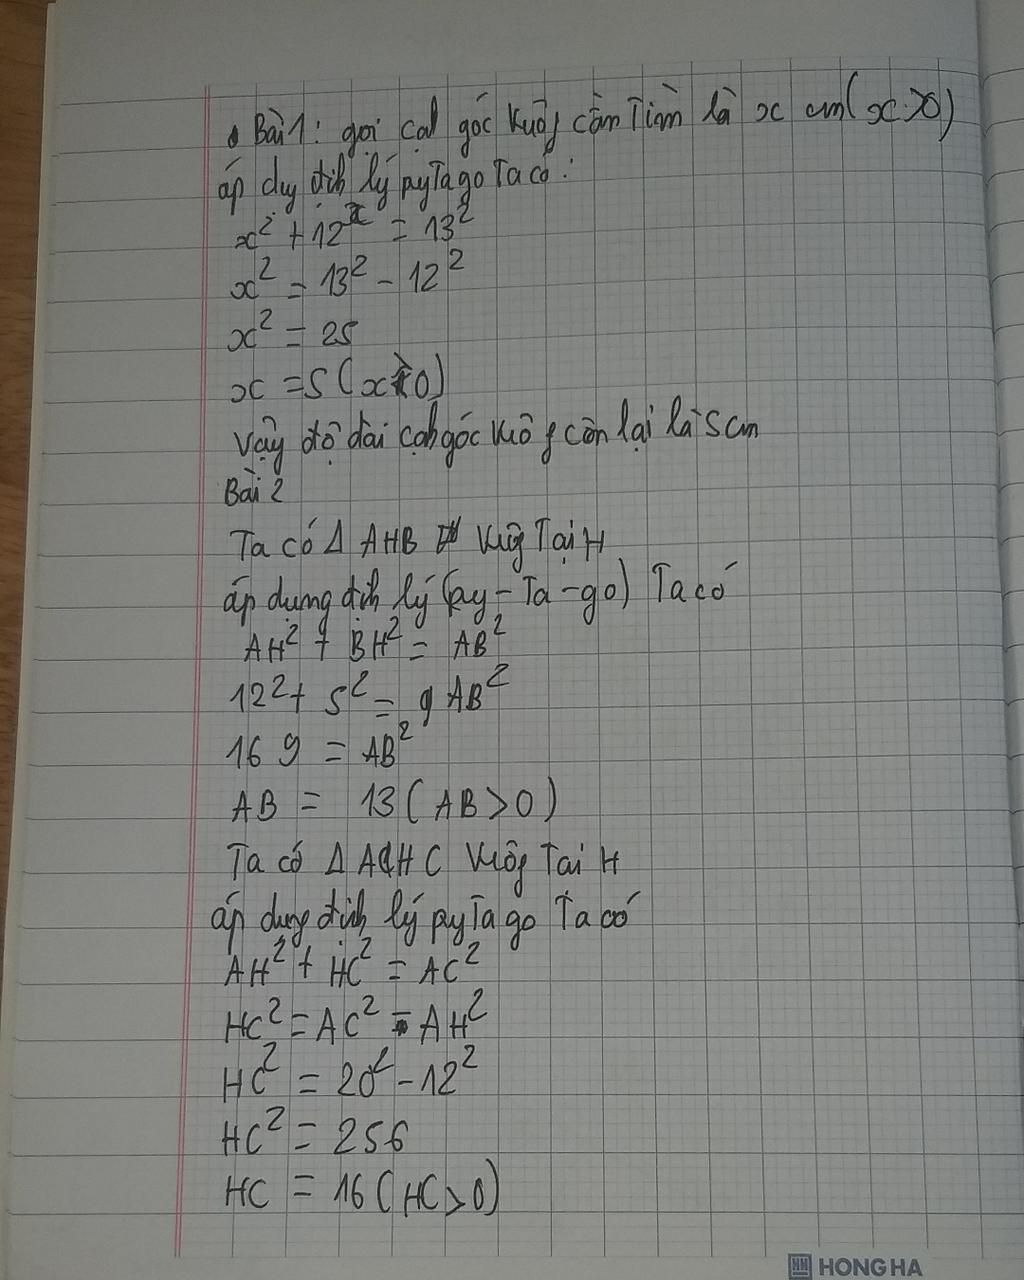 Bài 1: gọi cạh góc vuôg cần Tìm là x cm (x>0)
áp dụg địh lý pyTago Ta có:
x² + 12² = 13²
x² = 13² - 12²
x² = 25
x = 5 (x>0)
Vậy độ dài cạh góc vuôg còn lại là 5 cm
Bài 2
Ta có Δ AHB vuôg Tại H
áp dụng địh lý (py-Ta-go) Ta có
AH² + BH² = AB²
12² + 5² = AB²
169 = AB²
AB = 13 (AB>0)
Ta có Δ AHC vuôg Tại H
áp dụng địh lý pyTago Ta có
AH² + HC² = AC²
HC² = AC² - AH²
HC² = 20² - 12²
HC² = 256
HC = 16 (HC>0)
HONG HA